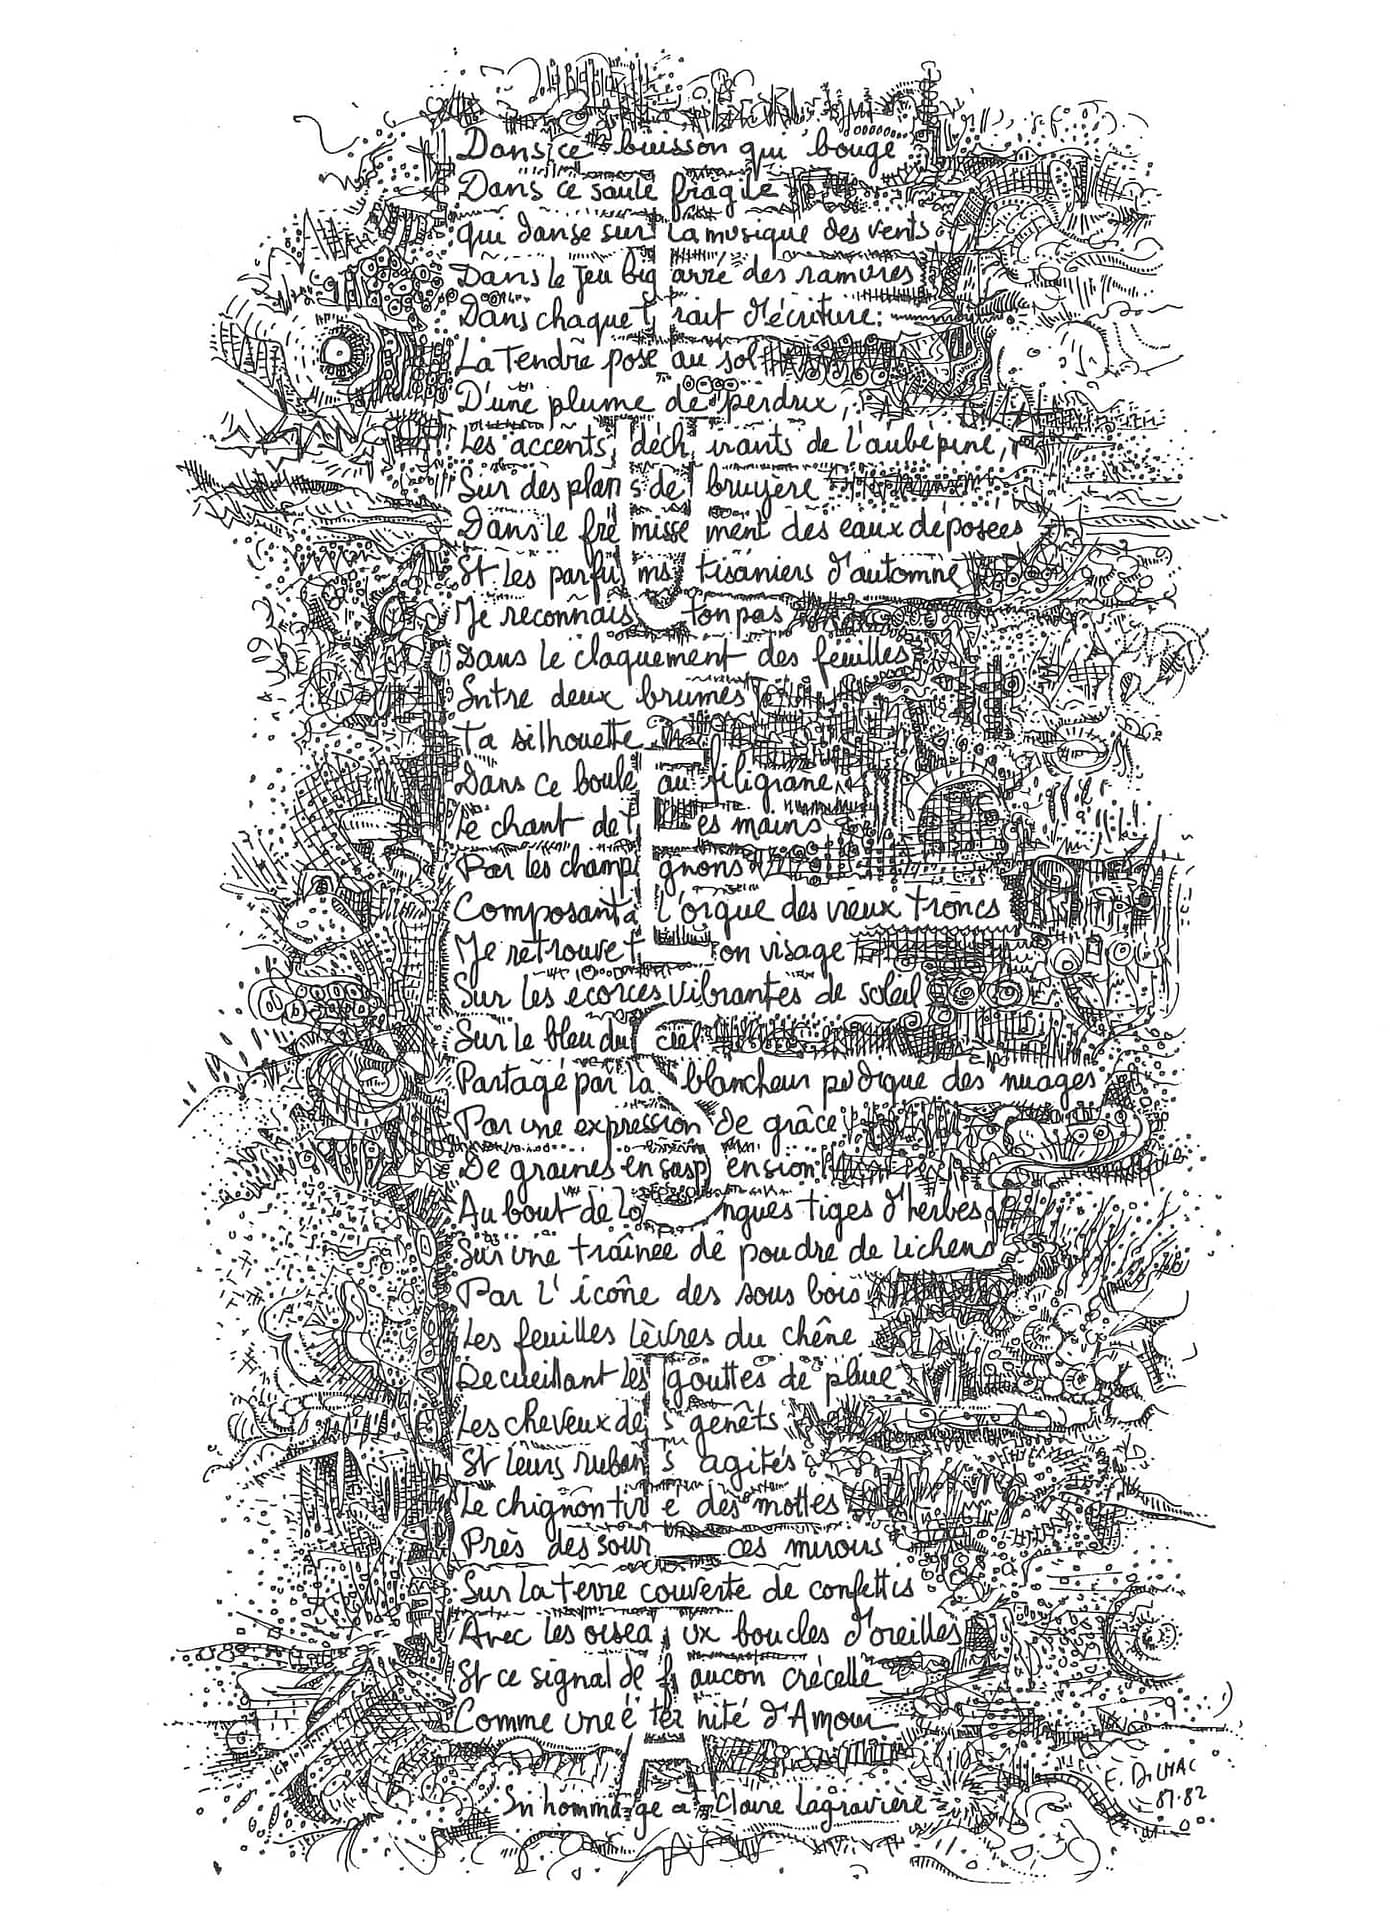 Dans ce buisson qui bouge
Dans ce saule fragile
qui danse sur la musique des vents
Dans le jeu bigarré des ramures
Dans chaque trait d'écriture:
La tendre pose au sol
D'une plume de perdrix,
Les accents, déchirants de l'aubépine,
Sur des plans de bruyère
Dans le frémissement des eaux déposées
Et les parfums tisaniers d'automne
Je reconnais ton pas
Dans le claquement des feuilles
Entre deux brumes
Ta silhouette
Dans ce bouleau filigrane,
Le chant de tes mains
Par les champignons
Composant à l'orgue des vieux troncs
Je retrouve ton visage
Sur les écorces vibrantes de soleil
Sur le bleu du ciel
Partagé par la blancheur pudique des nuages
Par une expression de grâce
De graines en suspension
Au bout de longues tiges d'herbes
Sur une traînée de poudre de lichens
Par l'icône des sous bois
Les feuilles lèvres du chêne
Recueillant les gouttes de pluie
Les cheveux des genêts
Et leurs rubans agités
Le chignon tiré des mottes
Près des sources miroirs
Sur la terre couverte de confettis
Avec les oiseaux boucles d'oreilles
Et ce signal de faucon crécelle
Comme une éternité d'Amour
En hommage à Claire Lagravière
E. DILMAC
87.82